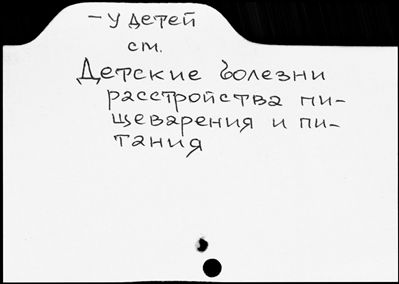 – у детей
см.
Детские болезни
расстройства пи-
щеварения и пи-
тания